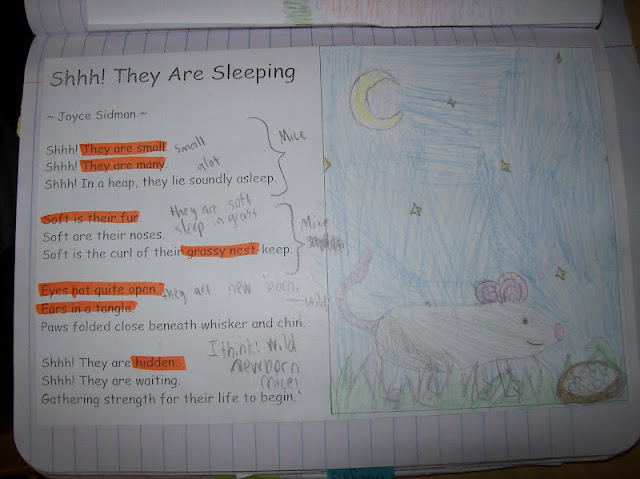 Shhh! They Are Sleeping
~ Joyce Sidman ~
Shhh! They are small. small
Shhh! They are many. alot
Mice
Shhh! In a heap, they lie soundly asleep.
Soft is their fur. they are soft
sleep in grass
Soft are their noses.
Mice
Soft is the curl of their grassy nest-keep.
Eyes not quite open. they are new born,
Ears in a tangle. wild
Paws folded close beneath whisker and chin.
Shhh! They are hidden. I think! Wild
Shhh! They are waiting. newborn
mice!
Gathering strength for their life to begin.